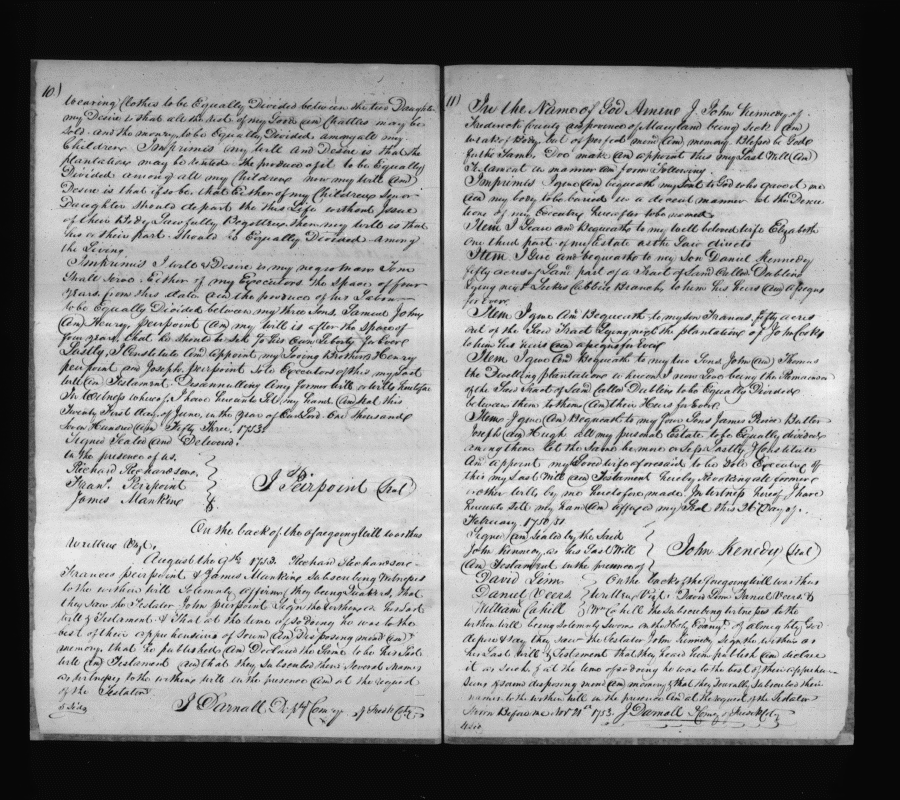 10)
Wearing Clothes to be Equally Divided between the two Daughters
my Desire is that all the rest of my Goods and Chattles may be
Sold and the money to be Equally Divided amongst all my
Children Imprimis my will and Desire is that the
plantations may be rented the produce of it to be Equally
Divided among all my Children now my will and
Desire is that if so be that Either of my Children Son or
Daughter should depart the this Life without Issue
of their Body Lawfully Begotten then my will is that
his or their part should be Equally Divided Among
the Living
Imprimis I will & Desire is my negro man Tom
Shall Serve Either of my Executors the Space of four
years from this date and the produce of his Labour
to be Equally Divided between my three Sons Samuel John
and Henry Peirpoint and my will is after the Space of
four years that he should be Set To his Own Liberty for Ever
Lastly, I Constitute And appoint my Loving Brothers Henry
peirpoint and Joseph Peirpoint Sole Executors of this my Last
will and Testament Disannulling Any former will or wills heretofore
In Witness whereof I have hereunto Set my hand and Seal this
Twenty First day of June in the year of Our Lord One thousand
Seven Hundred and Fifty Three. 1753
Signed Sealed and Delivered
in the presence of us.
Richard Richardson
Fran.s Peirpoint
James Mankine
J Peirpoint (Seal)
On the back of the aforegoing Will was thus
written Viz.t
August the 9th 1753. Richard Richardson
Frances peirpoint & James Mankine Subscribing Witnesses
to the within will Solemnly affirm they being Quakers, that
they Saw the Testator John peirpoint Sign the within as his Last
Will & Testament & That at the time of so doing he was to the
best of their apprehensions of Sound and Disposing mind and
memory that he published And Declared the Same to be his Last
will and Testament and that they Subscribed their Several Names
as witnesses to the within will in the presence and at the request
of the Testator
J Darnall Dep.ty Com.ry of Fredk Cty
11)
In the Name of God Amen I John Kennedy of
Frederick County and province of Maryland being Sick and
weak of Body but of perfect mind and memory Blessed be God
for the Same Doo make and appoint this my Last Will and
Testament in manner and form Following
Imprimis I give and bequeath my Soul to God who gave it me
and my body to be buried in a decent manner at the
of my Executrix hereafter to be named
Item I Leave and Bequeath to my well beloved wife Elizabeth
One third part of my Estate as the Law directs
Item I Give and bequeath to my Son Daniel Kennedy
fifty acres of Land part of a Tract of Land Called Dublin
Lying next Branch to him his heirs and assigns
for ever
Item I give and Bequeath to my son Francis fifty acres
out of the Said Tract Lying nigh the plantation of John
to him his heirs and assigns for Ever
Item I give and Bequeath to my two Sons John and Thomas
the Dwelling plantation whereon I now Live being the Remainder
of the Said Tract of Land Called Dublin to be Equally Divided
between them to them and their Heirs for Ever
Item I give and Bequeath to my four Sons James Butler
Joseph and Hugh all my personal Estate to be Equally divided
among them let the Same be more or Less Lastly I Constitute
And appoint my Loved wife aforesaid to be Sole Executrix of
this my Last Will and Testament hereby Revoking all former
or other wills by me heretofore made In witness hereof I have
hereunto Sett my hand and affixed my Seal this 26 Day of
February 1750/51
Signed and Sealed by the Said
John Kennedy as his Last Will
and Testament in the presence of
David Linn
Daniel Veers
William Cahill
John Kenedey (Seal)
On the back of the foregoing will was thus
written Viz.t David Linn Daniel Veers &
W.m Cahill the Subscribing witnesses to the
within will being Solemnly Sworn on the Holy Evang.s of almighty God
depose & say they Saw the Testator John Kennedy Sign the within as
his Last Will & Testament that they heard him publish and declare
it as Such & at the time of so doing he was to the best of their apprehen
sions of sound disposing mind and memory & that they Severally Subscribed their
names to the within will in the presence and at the request of the Testator
Sworn Before me Nov.r 21st 1753. J Darnall Com.ry of Fredk Cty